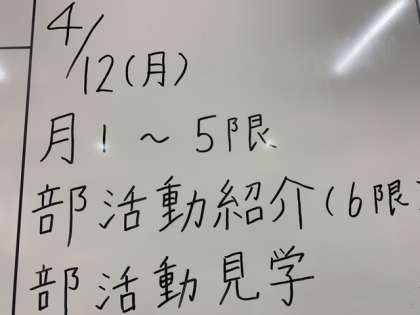 4/12(月)
月1~5限
部活動紹介(6限)
部活動見学